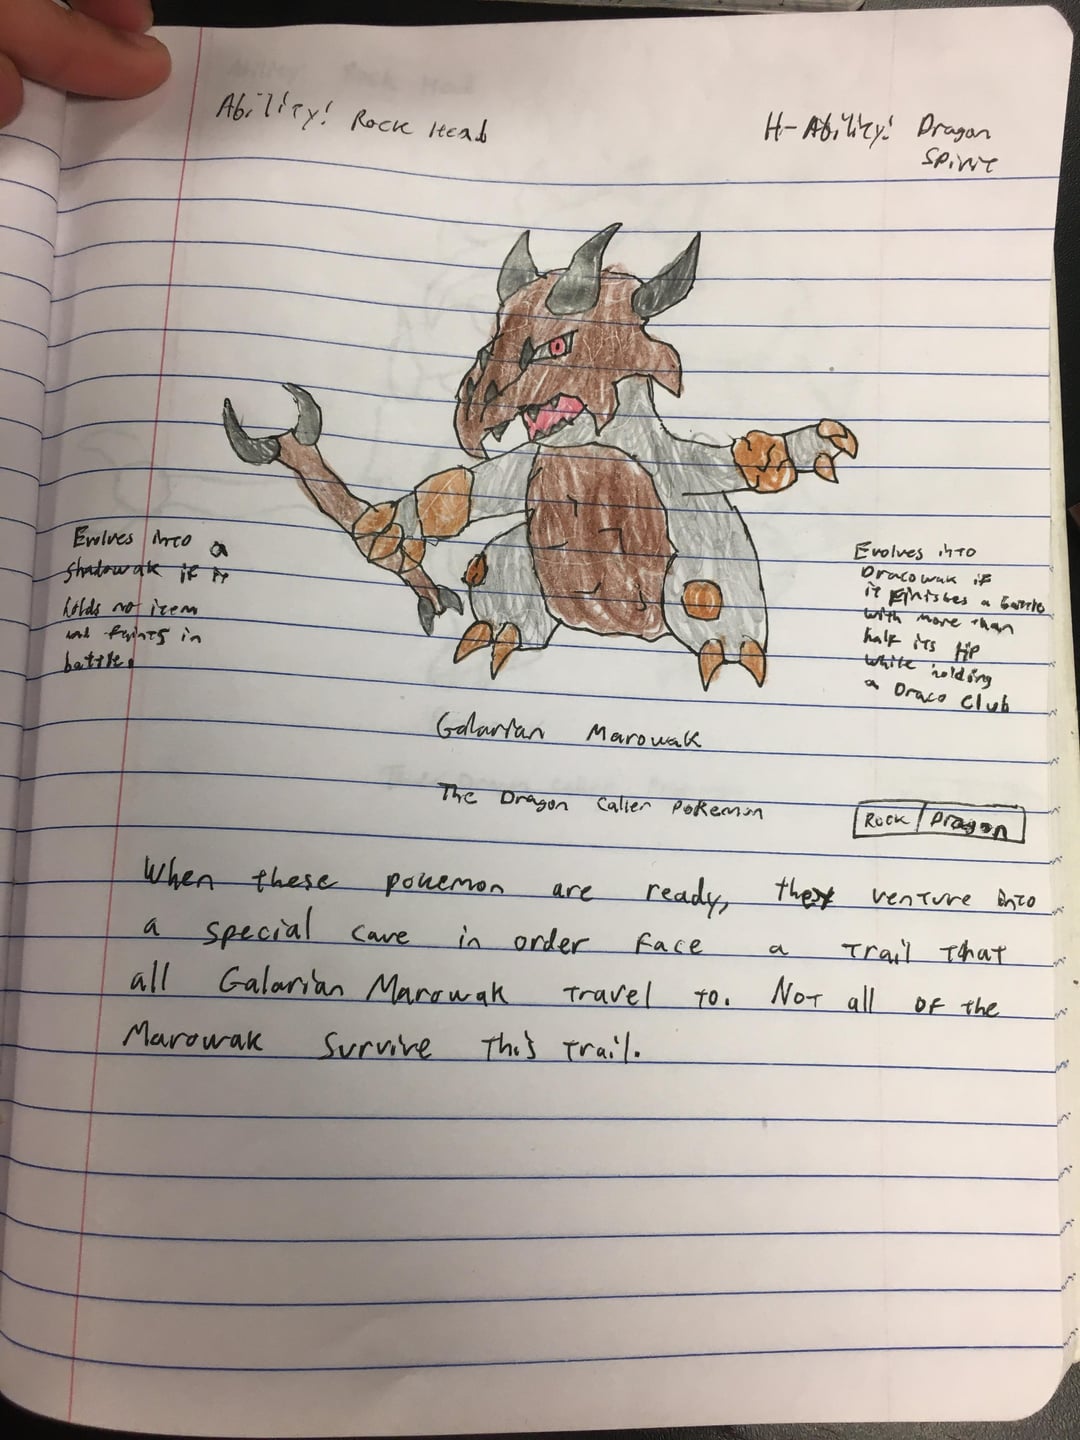 Ability: Rock Head
H-Ability: Dragon
Spirit
Evolves into a
shadowak if it
holds no item
and faints in
battle.
Evolves into
Dracowak if
it finishes a battle
with more than
half its HP
while holding
a Draco Club
Galarian Marowak
The Dragon Caller Pokemon
Rock Dragon
When these pokemon are ready, they venture into
a special cave in order face a trail that
all Galarian Marowak travel to. Not all of the
Marowak survive this trail.